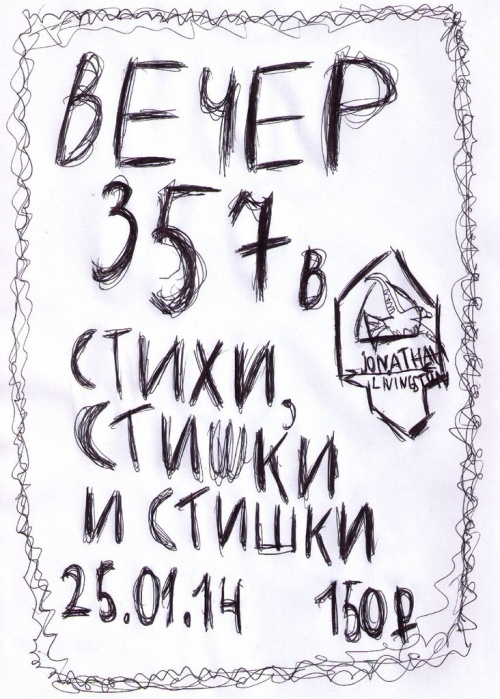 ВЕЧЕР
357 в
JONATHAN
LIVINGSTON
СТИХИ,
СТИШКИ
И СТИШКИ
25.01.14 150₽